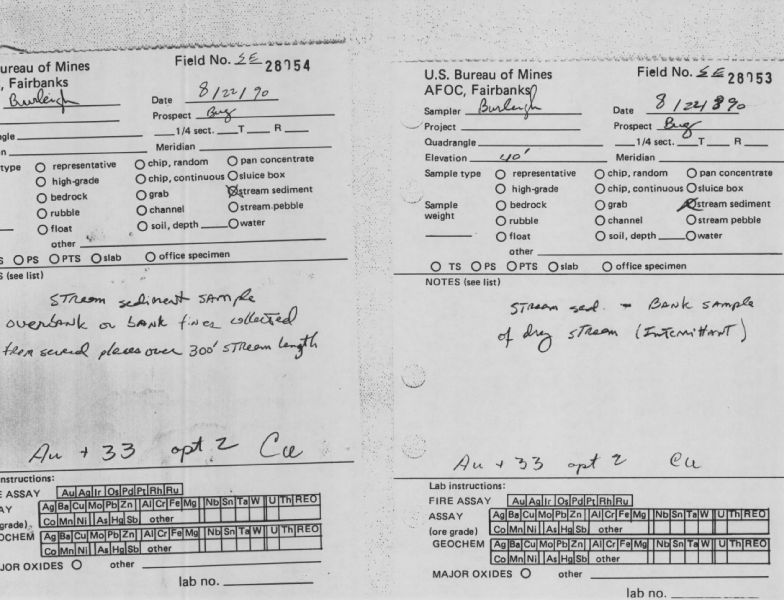 ureau of Mines
Field No. SE 28954
, Fairbanks
Burleigh
Date 8/22/90
Prospect Bug
ngle
1/4 sect. T R
n
Meridian
type representative chip, random pan concentrate
high-grade chip, continuous sluice box
bedrock grab stream sediment
rubble channel stream pebble
float soil, depth water
other
S PS PTS slab office specimen
S (see list)
Stream sediment sample
overbank or bank fines collected
from several places over 300' stream length
Au + 33 opt 2 Cu
nstructions:
E ASSAY Au Ag Ir Os Pd Pt Rh Ru
AY Ag Ba Cu Mo Pb Zn Al Cr Fe Mg Nb Sn Ta W U Th REO
grade) Co Mn Ni As Hg Sb other
OCHEM Ag Ba Cu Mo Pb Zn Al Cr Fe Mg Nb Sn Ta W U Th REO
Co Mn Ni As Hg Sb other
JOR OXIDES other
lab no.
U.S. Bureau of Mines
Field No. SE 28953
AFOC, Fairbanks
Sampler Burleigh
Date 8/22/90
Project
Prospect Bug
Quadrangle
1/4 sect. T R
Elevation 40'
Meridian
Sample type representative chip, random pan concentrate
high-grade chip, continuous sluice box
Sample bedrock grab stream sediment
weight rubble channel stream pebble
float soil, depth water
other
TS PS PTS slab office specimen
NOTES (see list)
Stream sed. - Bank sample
of dry stream (Intermittant)
Au + 33 opt 2 Cu
Lab instructions:
FIRE ASSAY Au Ag Ir Os Pd Pt Rh Ru
ASSAY Ag Ba Cu Mo Pb Zn Al Cr Fe Mg Nb Sn Ta W U Th REO
(ore grade) Co Mn Ni As Hg Sb other
GEOCHEM Ag Ba Cu Mo Pb Zn Al Cr Fe Mg Nb Sn Ta W U Th REO
Co Mn Ni As Hg Sb other
MAJOR OXIDES other
lab no.